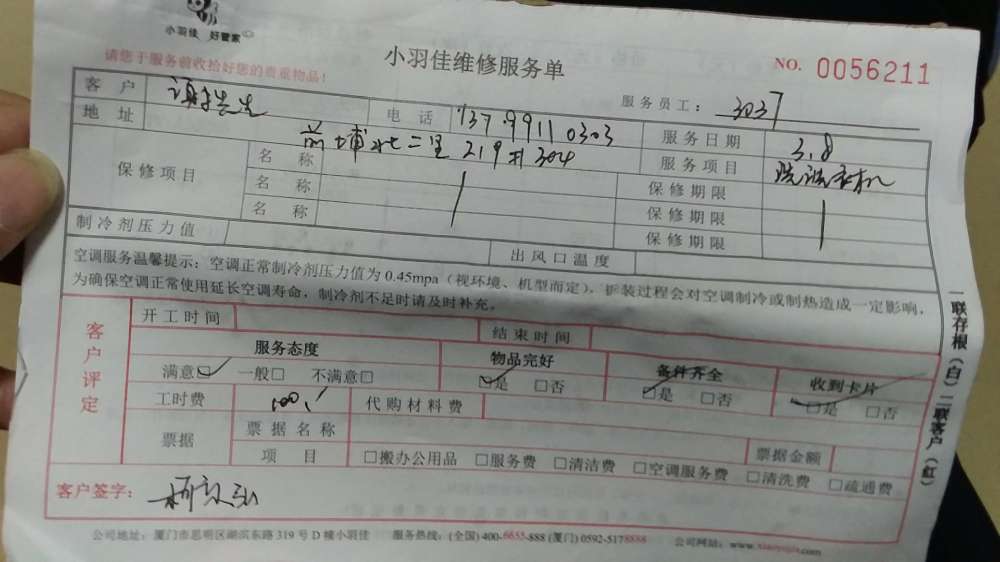 小羽佳 好管家
请您于服务前收拾好您的贵重物品!
小羽佳维修服务单
NO. 0056211
服务员工: 3037
客户 先生 电话 13799110303 服务日期 3.8
地址 前埔北二里219#304 服务项目 洗洗衣机
保修项目 名称 保修期限
名称 保修期限
名称 保修期限
制冷剂压力值 出风口温度
空调服务温馨提示:空调正常制冷剂压力值为0.45mpa(视环境、机型而定)。拆装过程会对空调制冷或制热造成一定影响,
为确保空调正常使用延长空调寿命,制冷剂不足时请及时补充。
开工时间 结束时间
客户评定
服务态度 物品完好 备件齐全 收到卡片
满意☑ 一般□ 不满意□ ☑是 □否 ☑是 □否 ☑是 □否
工时费 100. 代购材料费
票据 票据名称 票据金额
项目 □搬办公用品 □服务费 □清洁费 □空调服务费 □清洗费 □疏通费
客户签字:
公司地址:厦门市思明区湖滨东路319号D幢小羽佳 服务热线:(全国)400-6655-888 (厦门)0592-5178888 公司网站:www.xiaoyujia.com
一联存根(白)二联客户(红)